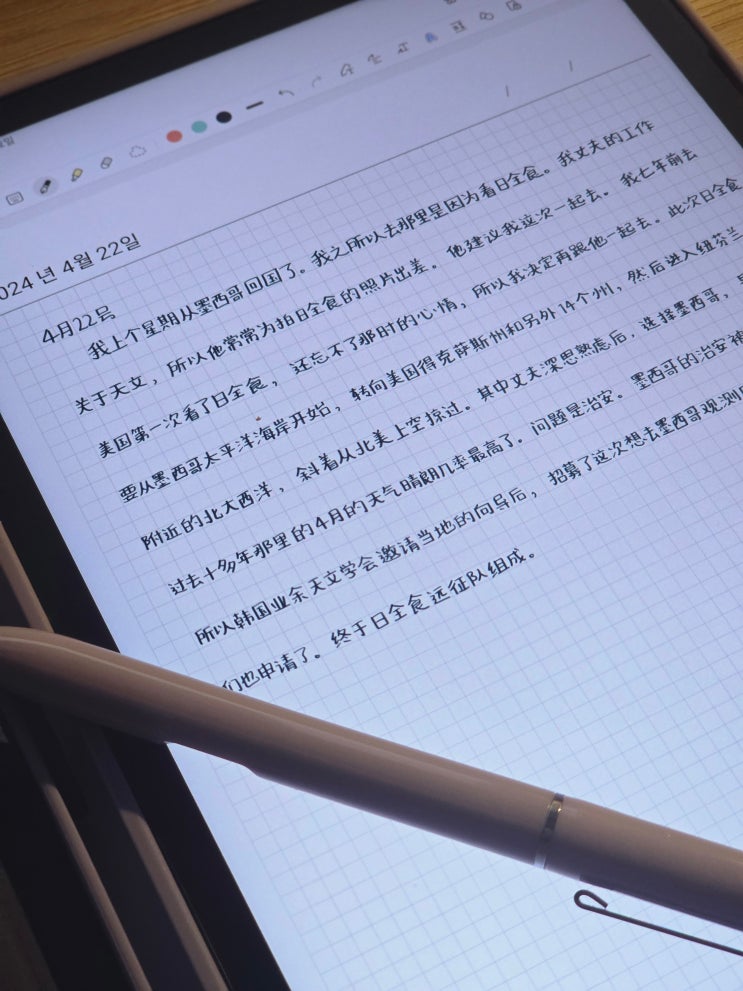 024 년 4월 22일
4月22号
我上个星期从墨西哥回国了。我之所以去那里是因为看日全食。我丈夫的工作
关于天文，所以他常常为拍日全食的照片出差。他建议我这次一起去。我七年前去
美国第一次看了日全食，还忘不了那时的心情，所以我决定再跟他一起去。此次日全食
要从墨西哥太平洋海岸开始，转向美国得克萨斯州和另外14个州，然后进入纽芬兰
附近的北大西洋，斜着从北美上空掠过。其中丈夫深思熟虑后，选择墨西哥，
过去十多年那里的4月的天气晴朗几率最高了。问题是治安。墨西哥的治安被
所以韩国业余天文学会邀请当地的向导后，招募了这次想去墨西哥观测
们也申请了。终于日全食远征队组成。